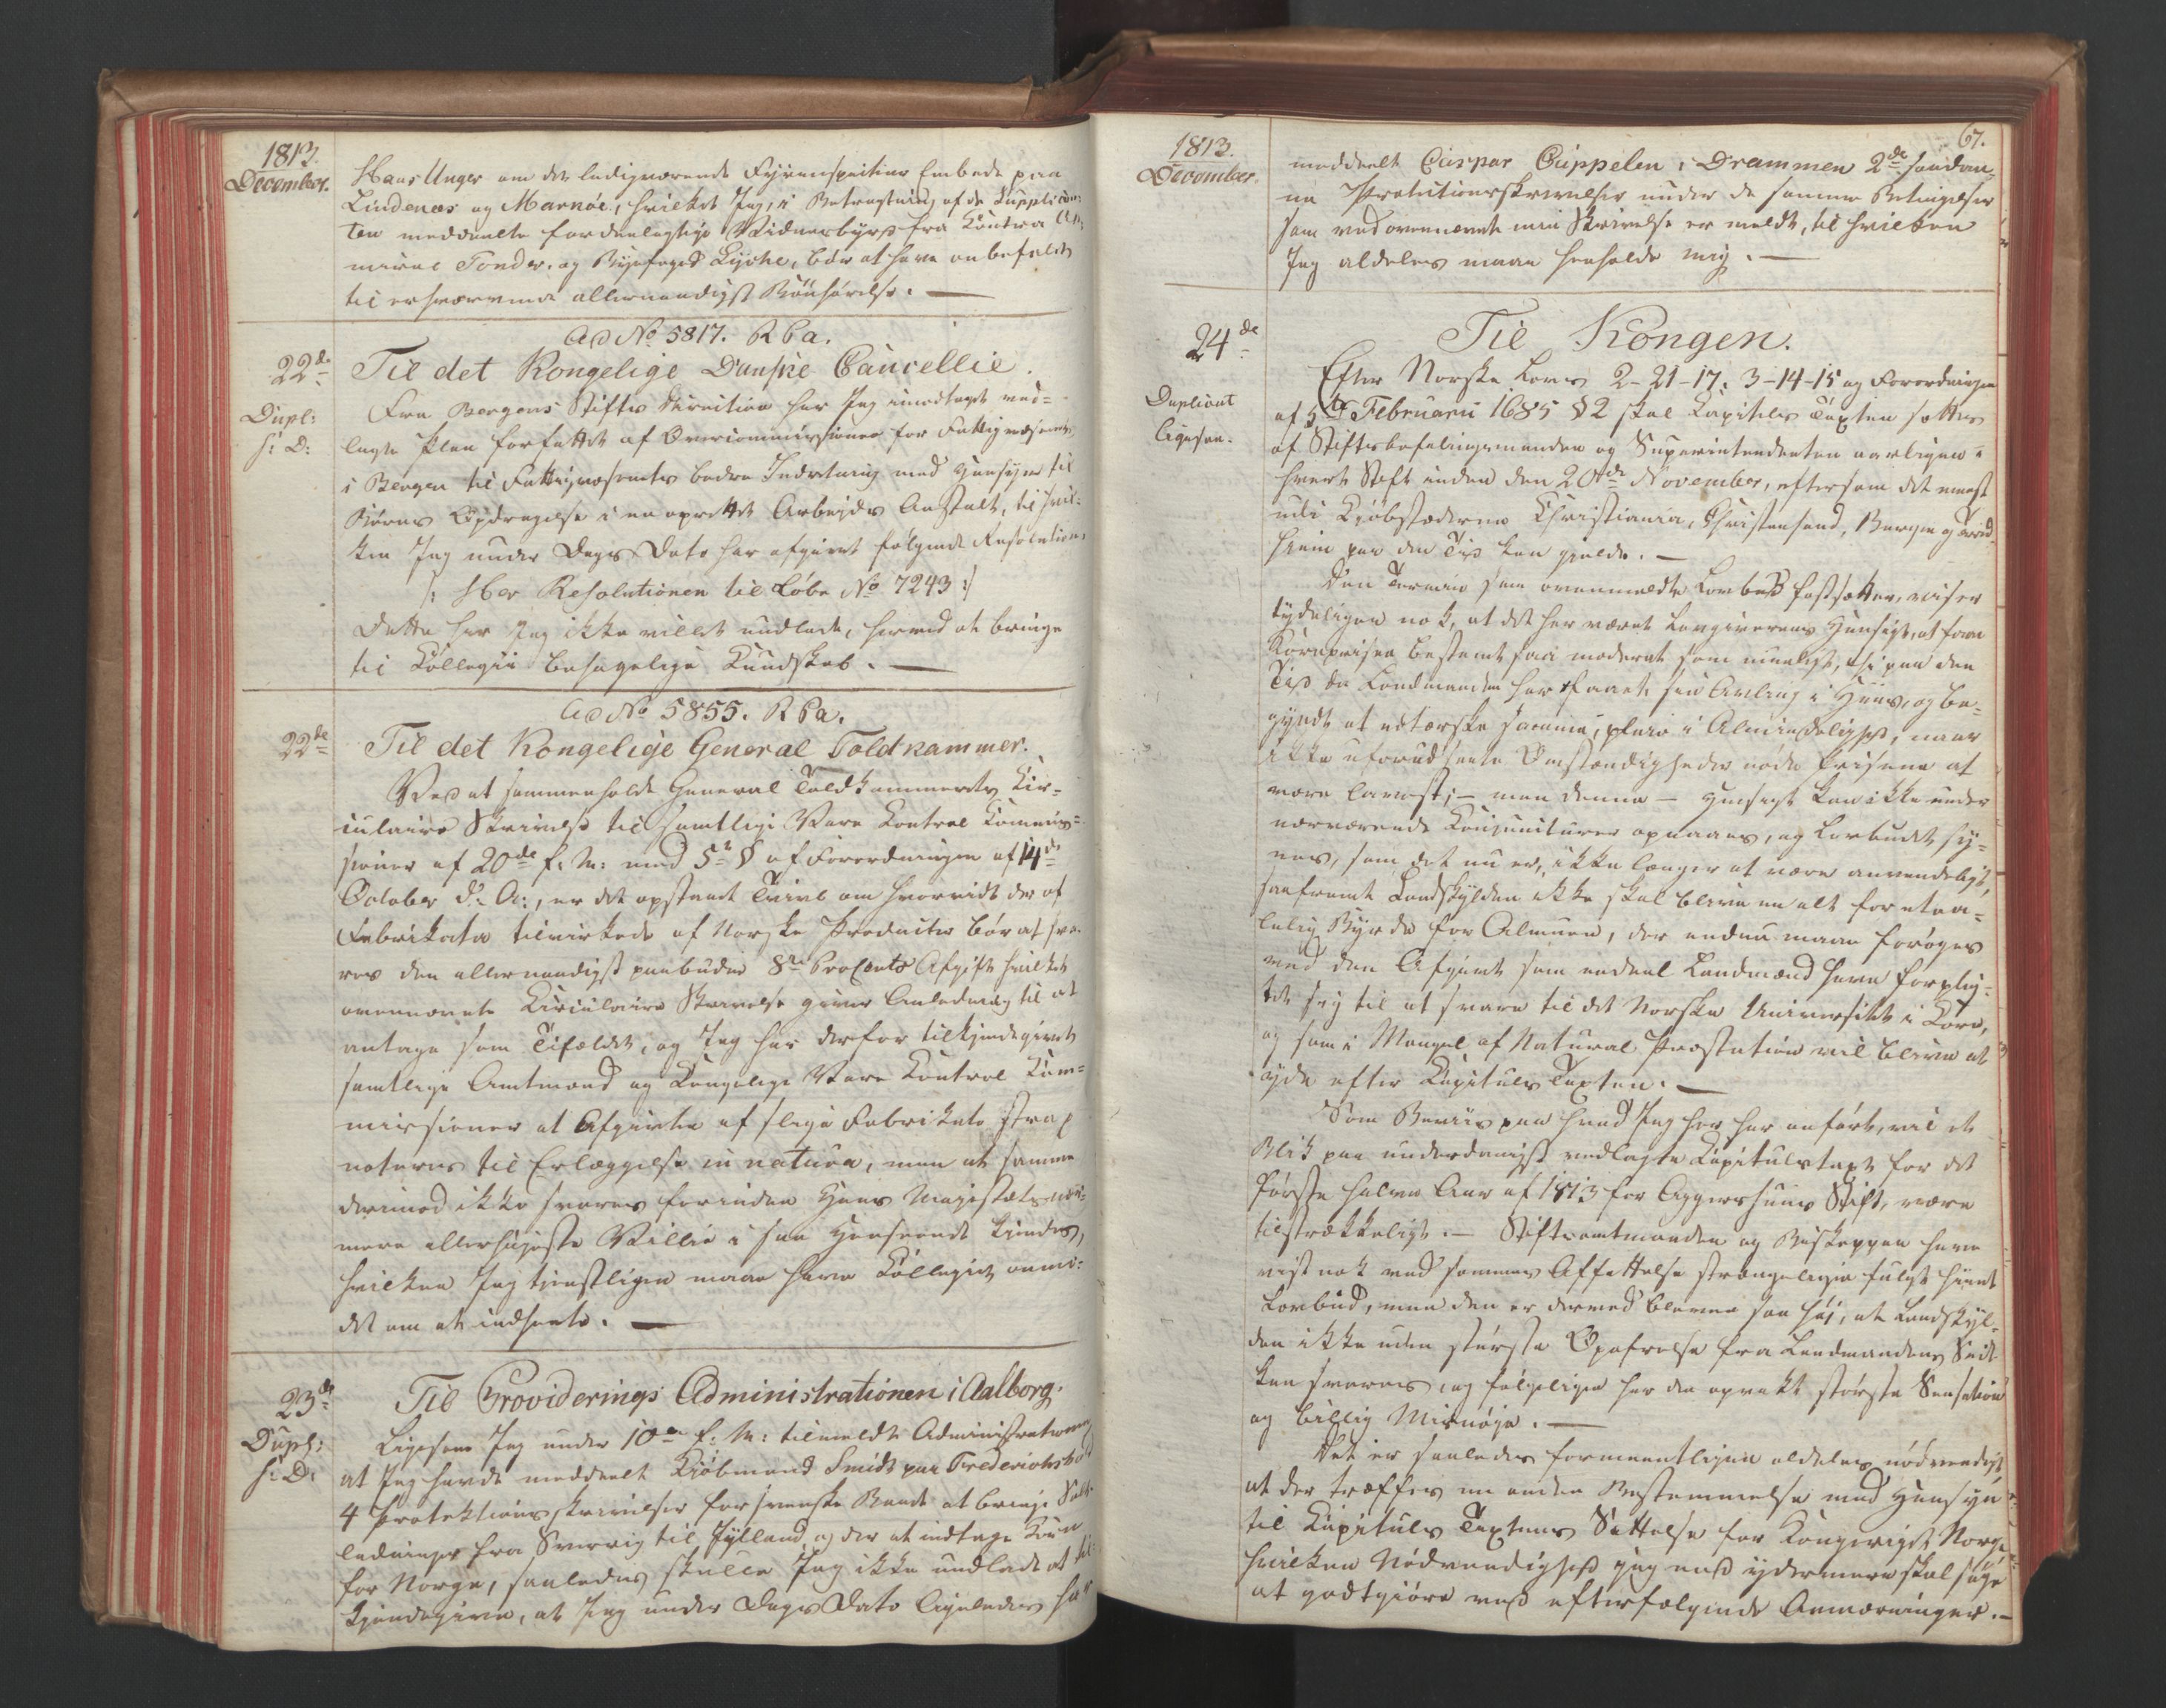 1813.
December.
Hans Unger om det ledigværende Fyrinspecteur Embede paa
Lindenæs og Marnöe, hvilket Jeg, i Betragtning af de Supplican-
ten meddeelte fordeelagtige Vidnesbyrd fra Contra Ad-
miral Tønder, og Byefoged Lycke, bør at have anbefalet
til erhvervende allernaadigst Bönhörelse. —
ad No 5817. R6a.
22de
Til det Kongelige Danske Cancellie.
Dupl:
s: D:
Fra Bergens Stifts Direction har Jeg imodtaget ved-
lagte Plan forfattet af Overcommissionen for Fattigvæsenet
i Bergen til Fattigvæsenets bedre Indretning med Hensyn til
Börns Opdragelse i en oprettet Arbeids Anstalt, til hvil-
ken Jeg under Dags Dato har afgivet følgende Resolution,
/: Her Resolutionen til Løbe No 7243 :/
Dette har Jeg ikke villet undlade, herved at bringe
til Collegii behagelige Kundskab. —
ad No 5855. R6a.
22de
Til det Kongelige General Toldkammer.
Ved at sammenholde General Toldkammerets Cir-
culaire Skrivelse til samtlige Vare Control Commis-
sioner af 20de f: M: med 5te § af Forordningen af 14de
October d: A:, er det opstaaet Tvivl om hvorvidt der af
Fabrikata tilvirkede af Norske Producter bør at sva-
res den allernaadigst paabudne 8te ProCents Afgift hvilket
ovennævnte Circulaire Skrivelse giver Anledning til at
antage som Tilfældet, og Jeg har derfor tilkjendegivet
samtlige Amtmænd og Kongelige Vare Control Com-
missioner at Afgivten af slige Fabrikata strax
noteres til Erlæggelse in natura, men at samme
derimod ikke svares forinden Hans Majestæts nær-
mere allerhøieste Villie i saa Henseende kjendes,
hvilken Jeg tjenstligen maae have Collegiet anmo-
det om at indhente. —
23de
Til Providerings Administrationen i Aalborg.
Dupl:
s: D:
Ligesom Jeg under 10de f: M: tilmeldte Administrationen
at Jeg havde meddeelt Kiöbmand Smidt paa Frederichshald
4 Protektions skrivelser for svenske Baade at bringe Salt-
ladninger fra Sverrig til Jylland og der at indtage Korn
for Norge, saaledes skulle Jeg ikke undlade at til-
kjendegive, at Jeg under Dags Dato ligeledes har
1813.
December.
67.
meddeelt Caspar Cappelen i Drammen 2de saadan-
ne Protectionsskrivelser under de samme Betingelser
som ved ovennævnte min Skrivelse er meldt, til hvilken
Jeg aldeles maae henholde mig. —
24de
Til Kongen.
Duplicat
ligesaa.
Efter Norske Lovs 2-21-17. 3-14-15 og Forordningen
af 5te Februarii 1685 § 2 skal Capitels Taxten sættes
af Stiftsbefalingsmanden og Superintendenten aarligen i
hvert Stift inden den 20de November, eftersom det meest
udi Kjöbstæderne Christiania, Christiansand, Bergen og Trond-
hiem paa den Tid kan gjelde. —
Den Termin som ovenmeldte Lovbud fastsætter, viser
tydeligen nok, at det har været Lovgiverens Hensigt, at faae
Kornpriisen bestemt saa moderat som mueligt, thi paa den
Tid da Landmanden har faaet sin Avling i Huus, og be-
gyndt at udtærske samme, pleie i Almindelighed, naar
ikke uforudseete Omstændigheder nöde Prisene at
være lavest; — men denne — Hensigt kan ikke under
nærværende Conjuncturer opnaaes, og Lovbudet sy-
nes, som det nu er, ikke længer at være anvendeligt,
saafremt Landskylden ikke skal blive en alt for utaa-
lelig Byrde for Almuen, der endnu maae forøges
ved den Afgivt som endeel Landmænd have forplig-
tet sig til at svare til det Norske Universitet i Korn,
og som i Mangel af Natural Præstation vil blive at
yde efter Capitels Taxten. —
Som Beviis paa hvad Jeg her har anført, vil et
Blik paa underdanigst vedlagte Capitelstaxt for det
første halve Aar af 1813 for Aggershuus Stift, være
tilstrækkeligt. — Stiftamtmanden og Biskoppen have
vist nok ved sammes Affattelse strængeligen fulgt hiint
Lovbud, men den er derved bleven saa høi, at Landskyl-
den ikke uden største Opofrelse fra Landmandens Side
kan svares, og følgeligen har den opvakt største Sensation
og billig Misnöje. —
Det er saaledes formeentligen aldeles nødvendigt
at der træffes en anden Bestemmelse med Hensyn
til Capitels Taxtens Sættelse for Kongeriget Norge
hvilken Nödvendighed Jeg end ydermere skal søge
at godtgiöre ved efterfølgende Anmærkninger. —